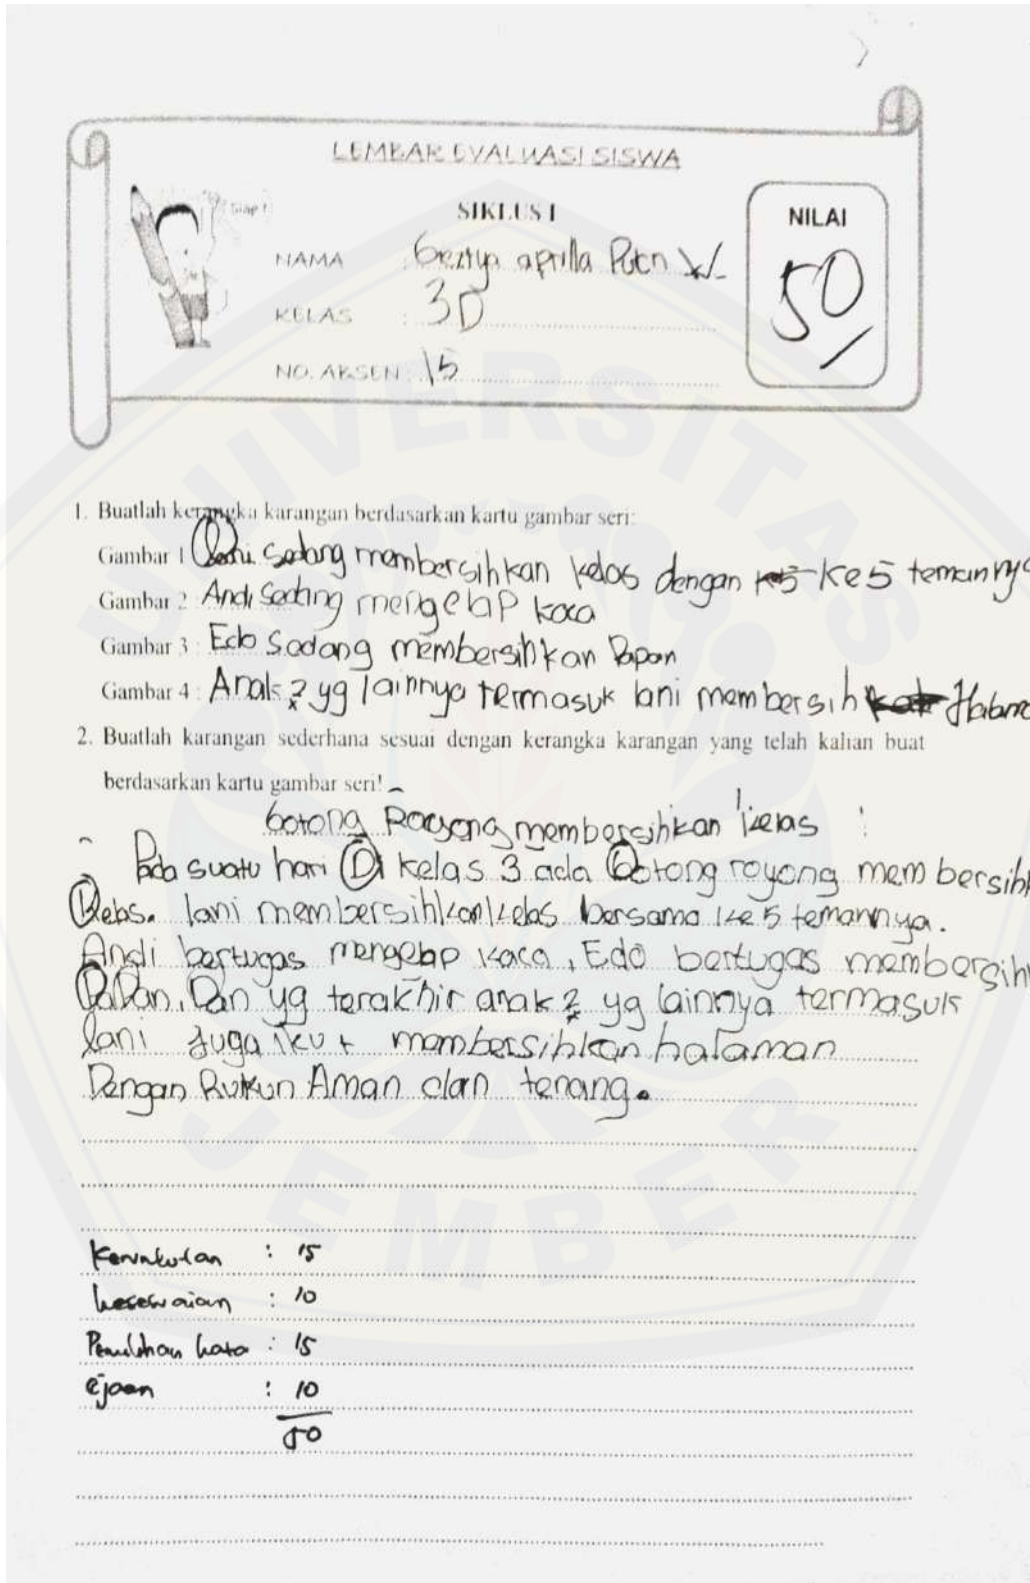 LEMBAR EVALUASI SISWA
Siap !
SIKLUS I
NILAI
50
NAMA : Geztya aprilla Putri W
KELAS : 3D
NO. ABSEN : 15
1. Buatlah kerangka karangan berdasarkan kartu gambar seri:
Gambar 1 lani Sedang membersihkan kelas dengan ke 5 temannya
Gambar 2 Andi Sedang mengelap kaca
Gambar 3 : Edo Sedang membersihkan Papan
Gambar 4 : Anak 2 yg lainnya termasuk lani membersih Halama
2. Buatlah karangan sederhana sesuai dengan kerangka karangan yang telah kalian buat
berdasarkan kartu gambar seri!
Gotong Royong membersihkan kelas
Pada suatu hari Di kelas 3 ada Gotong royong membersih
Kelas. lani membersihkan kelas bersama ke 5 temannya.
Andi bertugas mengelap kaca, Edo bertugas membersih
PaPan, Dan yg terakhir anak 2 yg lainnya termasuk
lani Juga ikut membersihkan halaman
Dengan Rukun Aman dan tenang.
Keruntutan : 15
kesesuaian : 10
Pemilihan kata : 15
ejaan : 10
50
UNIVERSITAS
JEMBER